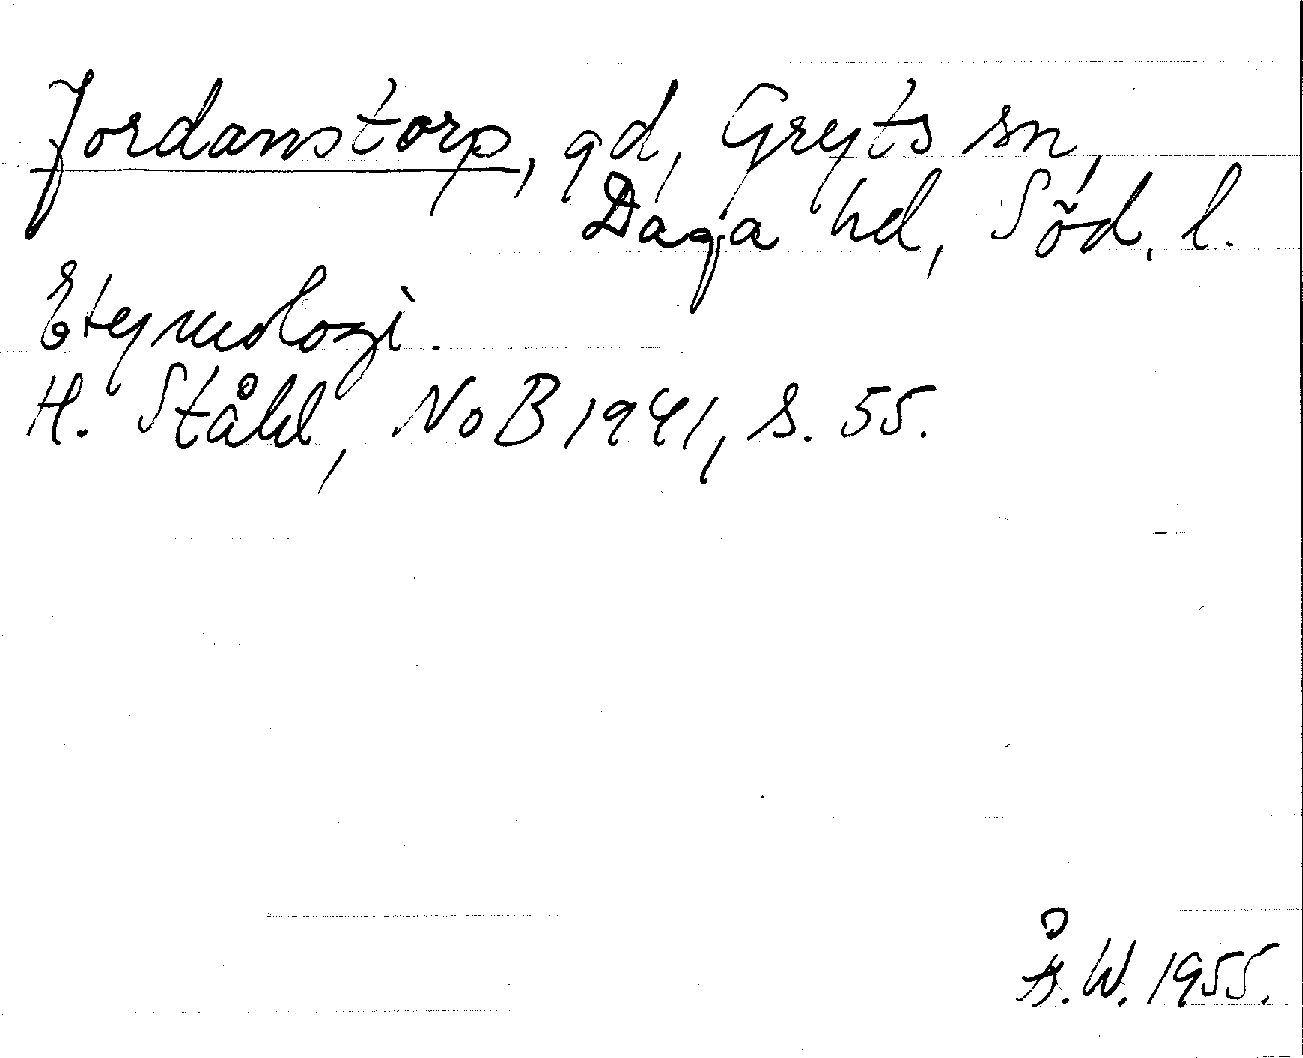 Jordanstorp, gd, Gryts sn,
Daga hd, Söd. l.
Etymologi.
H. Ståhl, NoB 1941, s. 55.
Å.W. 1955.